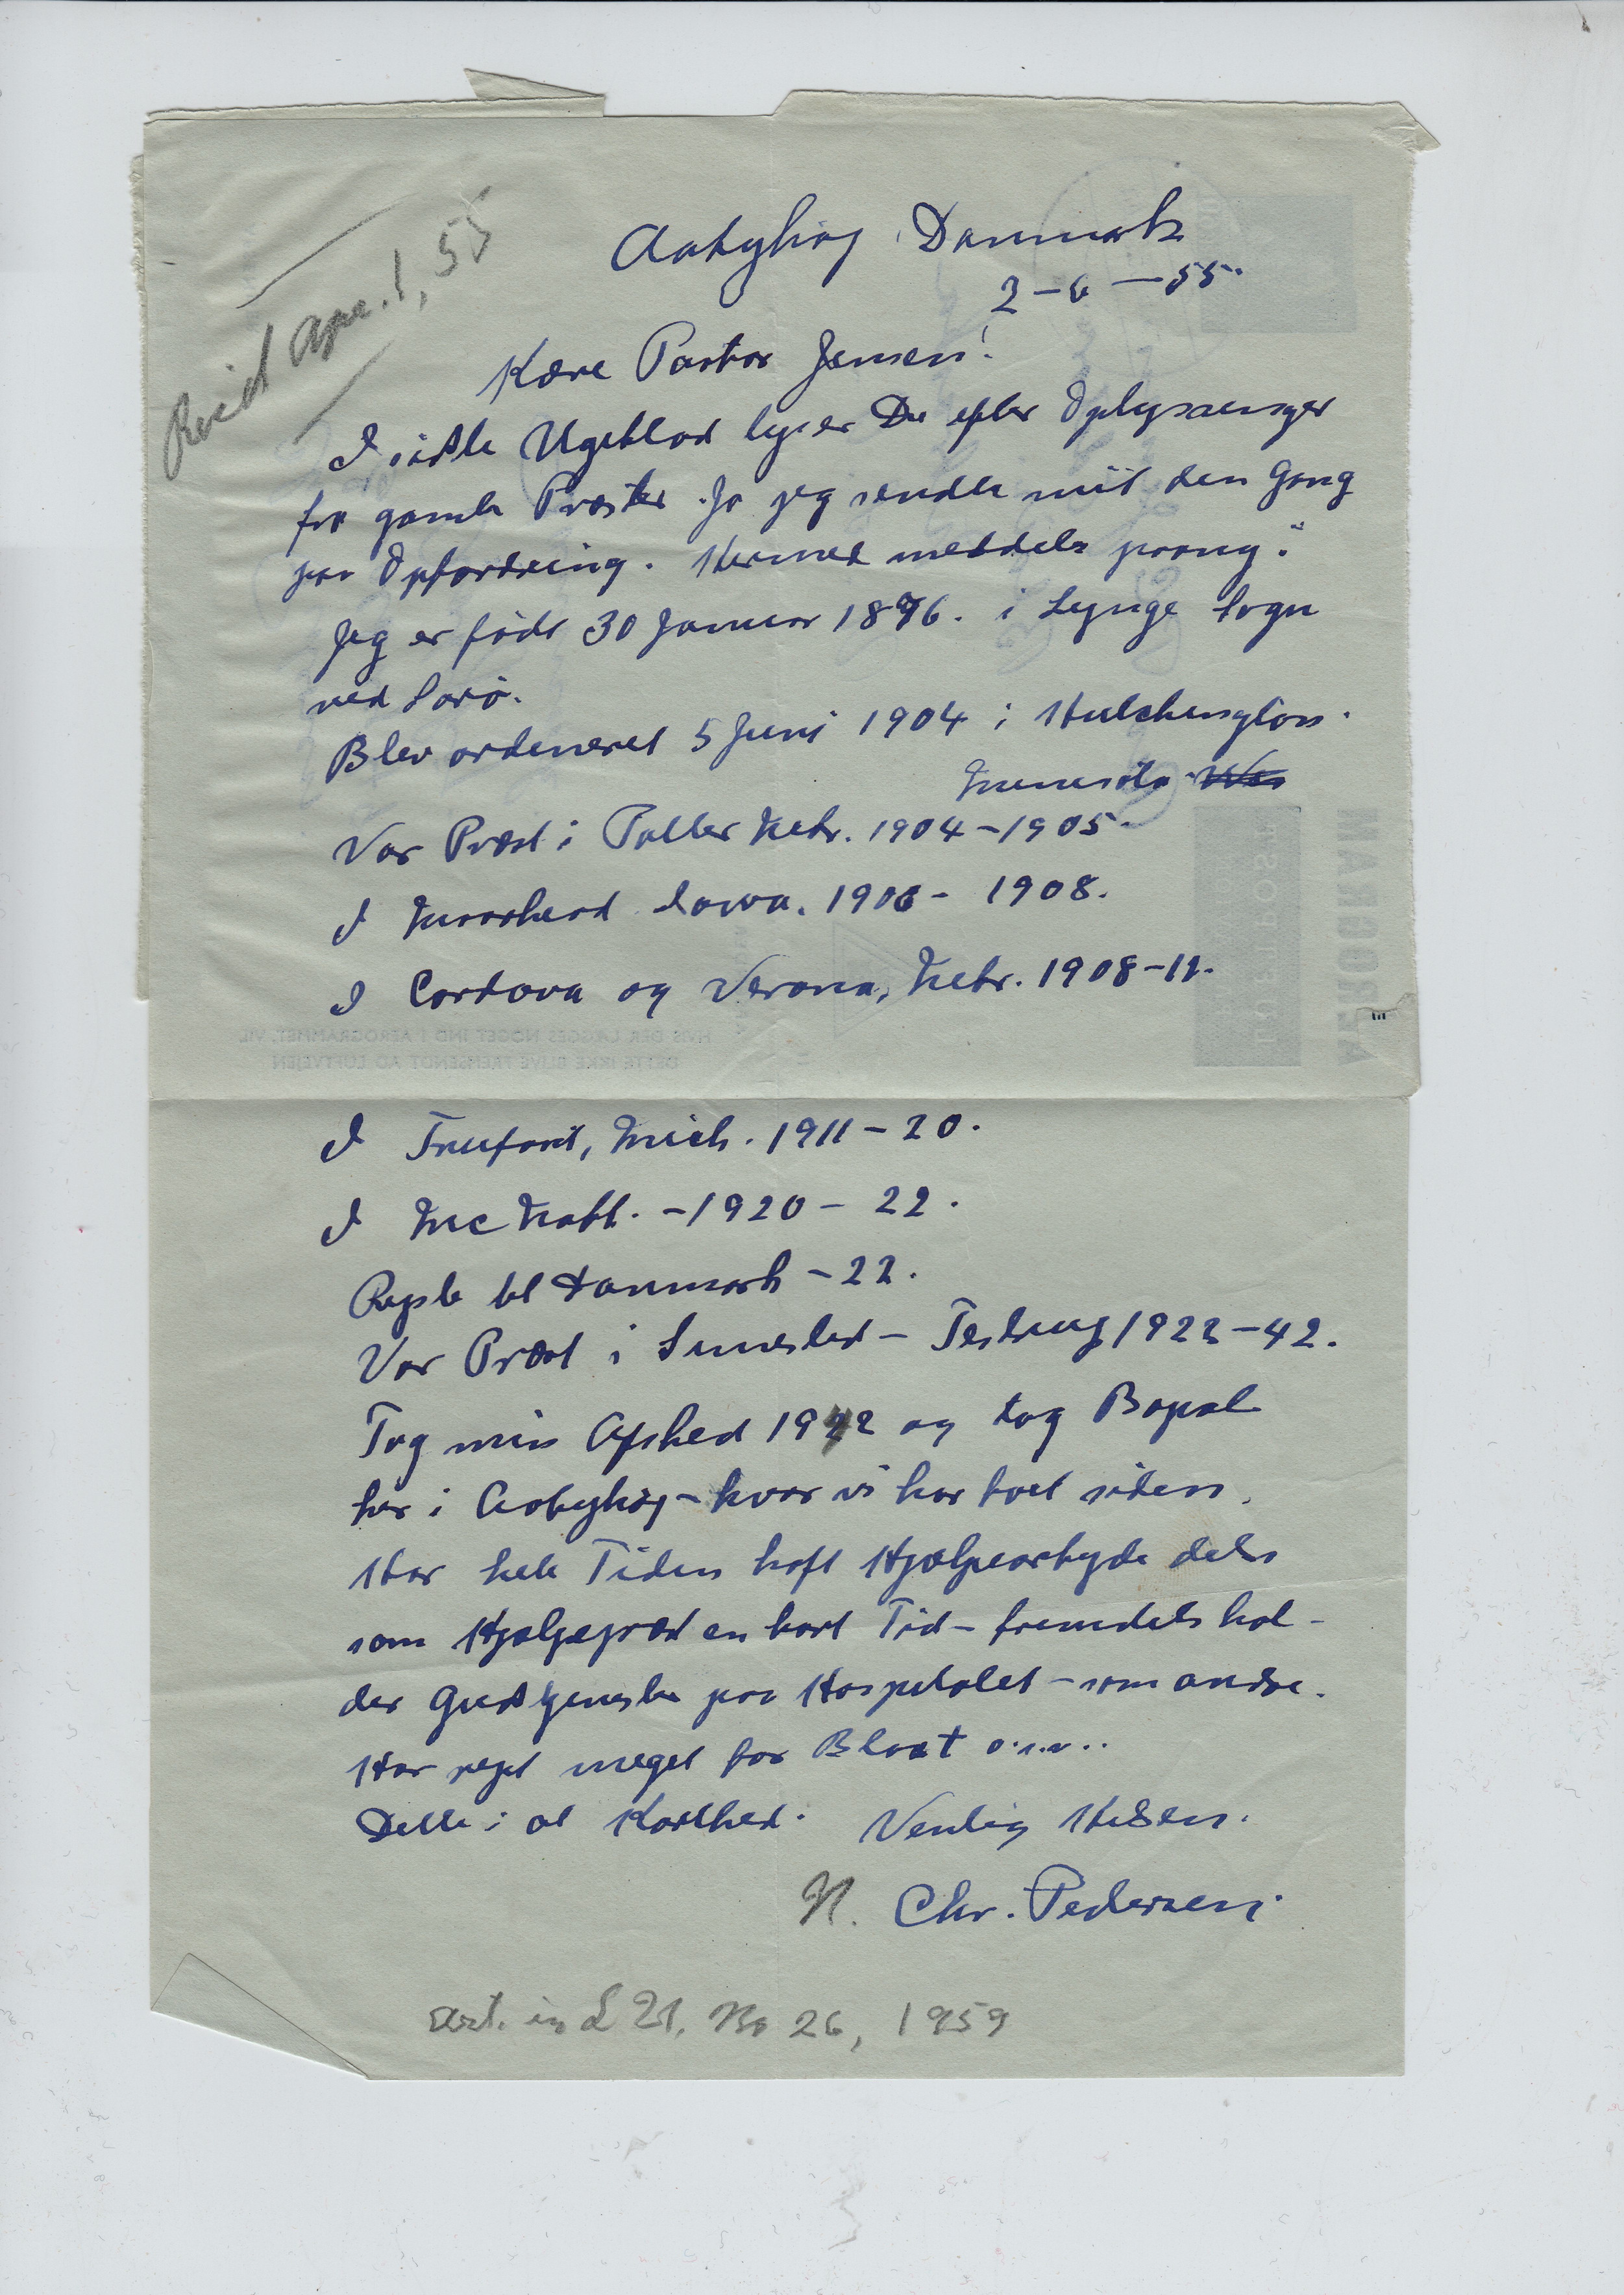 Recd Apr. 1, 55
Aabyhøj Danmark
2-6-55.
Kære Pastor Jensen!
I sidste Ugeblad lyser Du efter Oplysninger
fra gamle Præster. Ja jeg sendte mit den Gang
paa Opfordring. Hermed meddeles paany:
Jeg er født 30 Januar 1876. i Lynge Sogn
ved Sorø.
Blev ordineret 5 Juni 1904 i Hutchinson.
Minnesota Wis
Var Præst i Potter Nebr. 1904-1905.
I Moorhead Iowa. 1906-1908.
I Cordova og Verona, Nebr. 1908-11.
I Trufant, Mich. 1911-20.
I Mc Nabb. -1920-22.
Rejste til Danmark -22.
Var Præst i Simested - Testrup 1922-42.
Tog min Afsked 1942 og tog Bopæl
her i Aabyhøj - hvor vi har boet siden.
Har hele Tiden haft Hjælpearbejde dels
som Hjælpepræst en kort Tid - fremdeles hol-
der Gudstjeneste paa Hospitalet - som andre.
Har rejst meget for Blaat o.s.v..
Dette i al Korthed. Venlig Hilsen.
N. Chr. Pedersen.
in L 21, No 26, 1959
AEROGRAM
LUFTPOST
HVIS DER LÆGGES NOGET IND I AEROGRAMMET, VIL
DETTE IKKE BLIVE FREMSENDT AD LUFTVEJEN